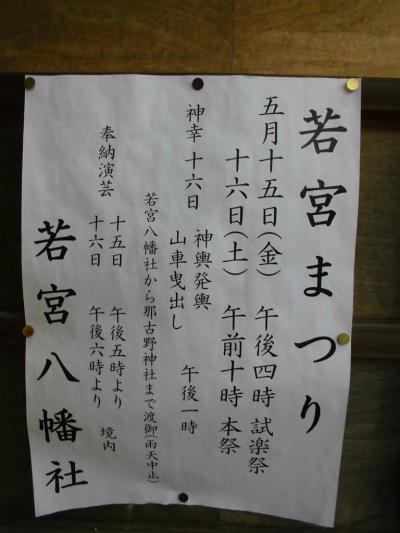 若宮まつり
五月十五日(金) 午後四時 試楽祭
十六日(土) 午前十時 本祭
神幸 十六日 神輿発輿
山車曳出し 午後一時
若宮八幡社から那古野神社まで渡御(雨天中止)
奉納演芸 十五日 午後五時より
十六日 午後六時より 境内
若宮八幡社